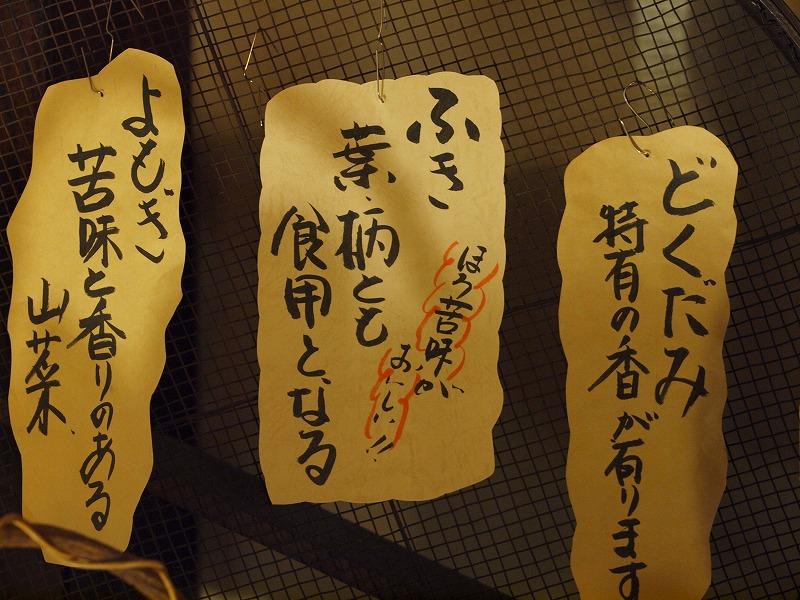 どくだみ
特有の香が有ります
ふき
葉・柄とも
食用となる
ほろ苦味が
おいしい!!
よもぎ
苦味と香りのある
山菜